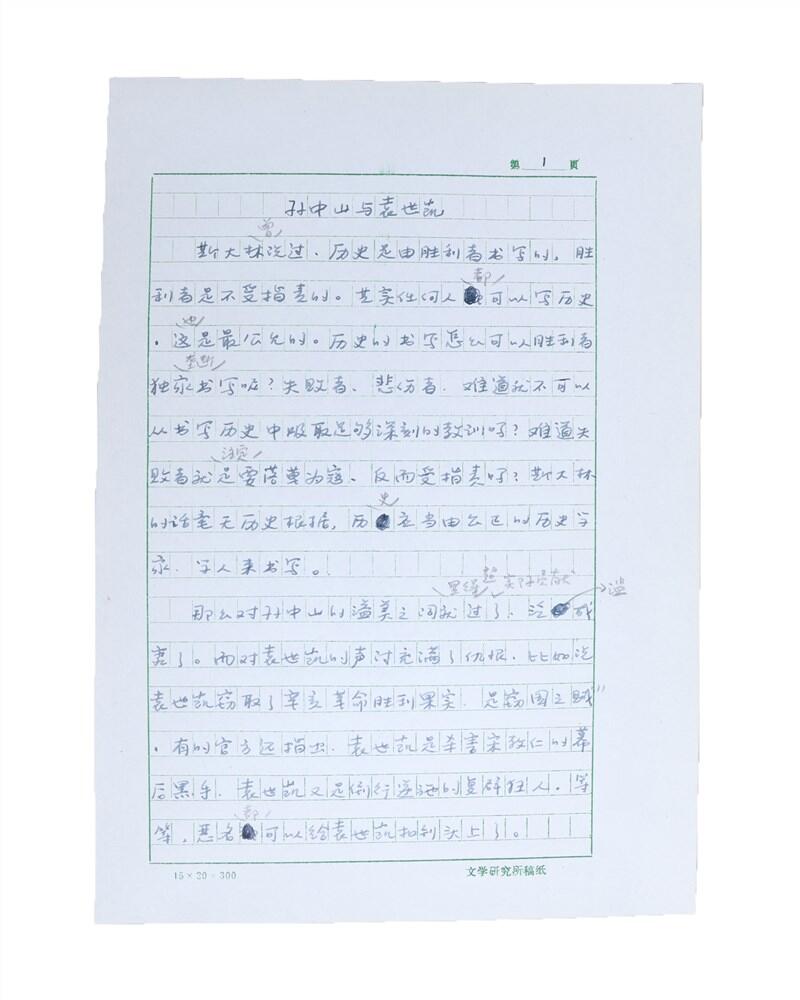 第 1 页
孙中山与袁世凯
曾
斯大林说过、历史是由胜利者书写的，胜
都
利者是不受指责的。其实任何人可以写历史
也
，这是最公允的。历史的书写怎么可以胜利者
垄断
独家书写呢？失败者、悲伤者、难道就不可以
从书写历史中吸取足够深刻的教训吗？难道失
注定
败者就是要落草为寇、反而受指责吗？斯大林
史
的话毫无历史根据，历应当由公正的历史学
家、学人来书写。
超 实际贡献
那么对孙中山的溢美之词就过了、泛成
滥
害了。而对袁世凯的声讨充满了仇恨，比如说
袁世凯窃取了辛亥革命胜利果实、是窃国之贼”
，有的官方还指出、袁世凯是杀害宋教仁的幕
后黑手、袁世凯又是倒行逆施的复辟狂人，等
都
等，恶名可以给袁世凯扣到头上了。
15×20=300
文学研究所稿纸